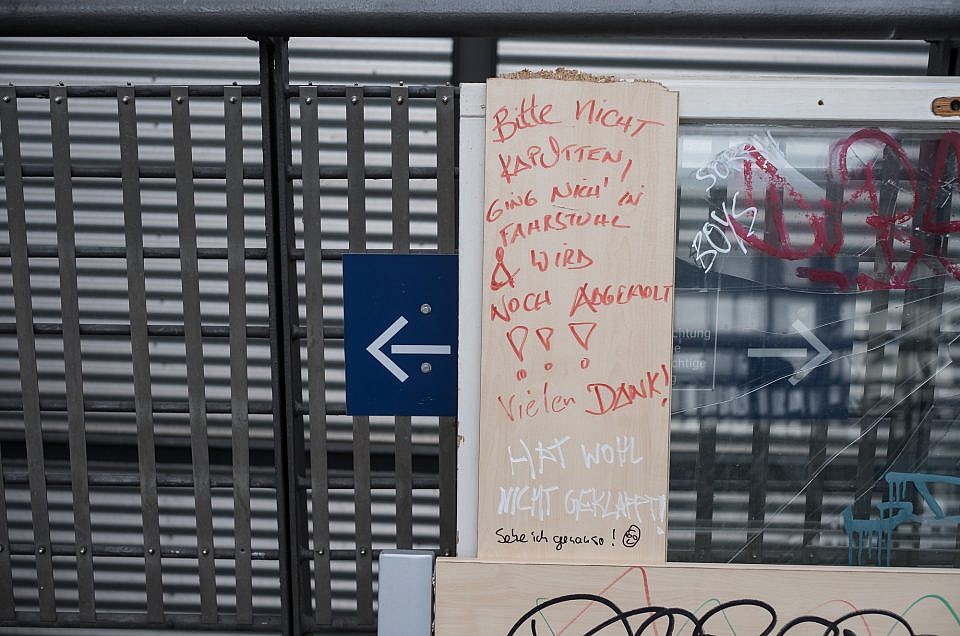 Bitte nicht
KAPUTTEN,
GING NICH' IN
FAHRSTUHL
& WIRD
NOCH ABGEHOLT
!!!
Vielen DANK!
HAT WOHL
NICHT GEKLAPPT!
Sehe ich genauso!
SOX
BOYS
chtung
e
chtige
g